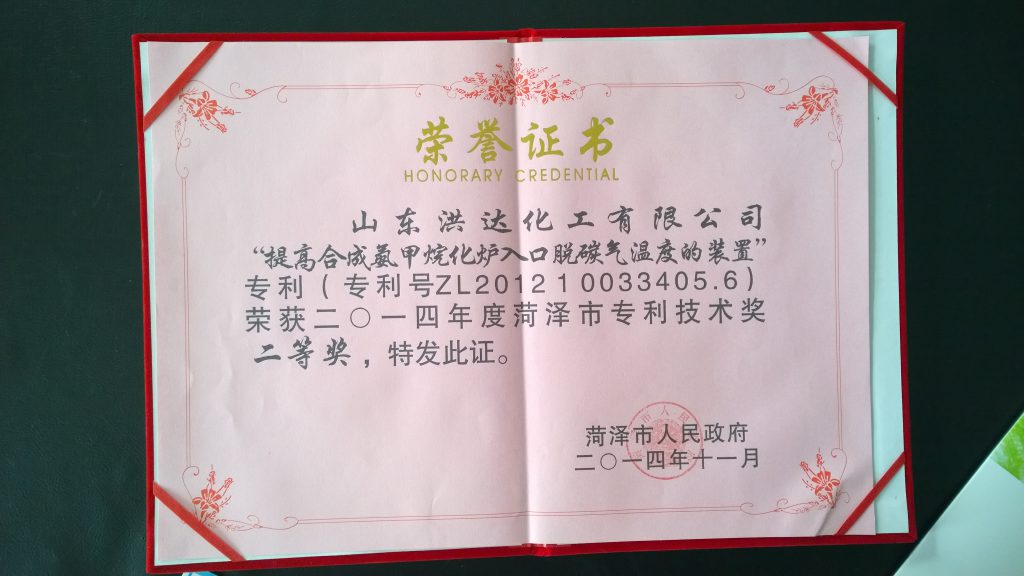 荣誉证书
HONORARY CREDENTIAL
山东洪达化工有限公司
“提高合成氨甲烷化炉入口脱碳气温度的装置”
专利（专利号ZL201210033405.6）
荣获二〇一四年度菏泽市专利技术奖
二等奖，特发此证。
菏泽市人民政府
二〇一四年十一月